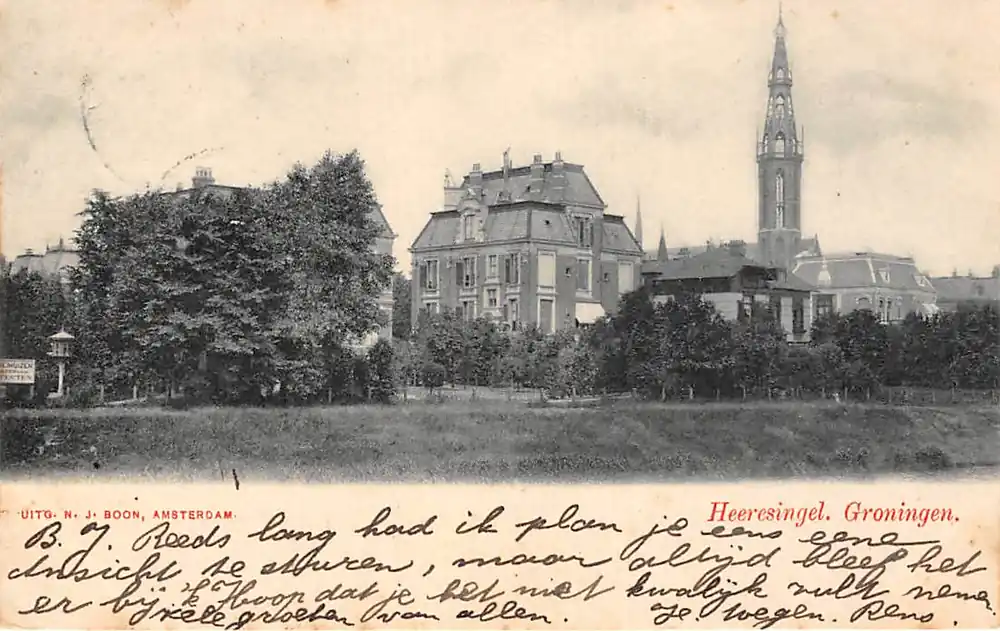 UITG. N. J. BOON, AMSTERDAM.
Heeresingel. Groningen.
B. J. Reeds lang had ik plan je eens eene
Ansicht te sturen, maar altijd bleef het
er bij. 'k Hoop dat je het niet kwalijk zult nemen.
Vele groeten van allen. Je toegen. Rens.